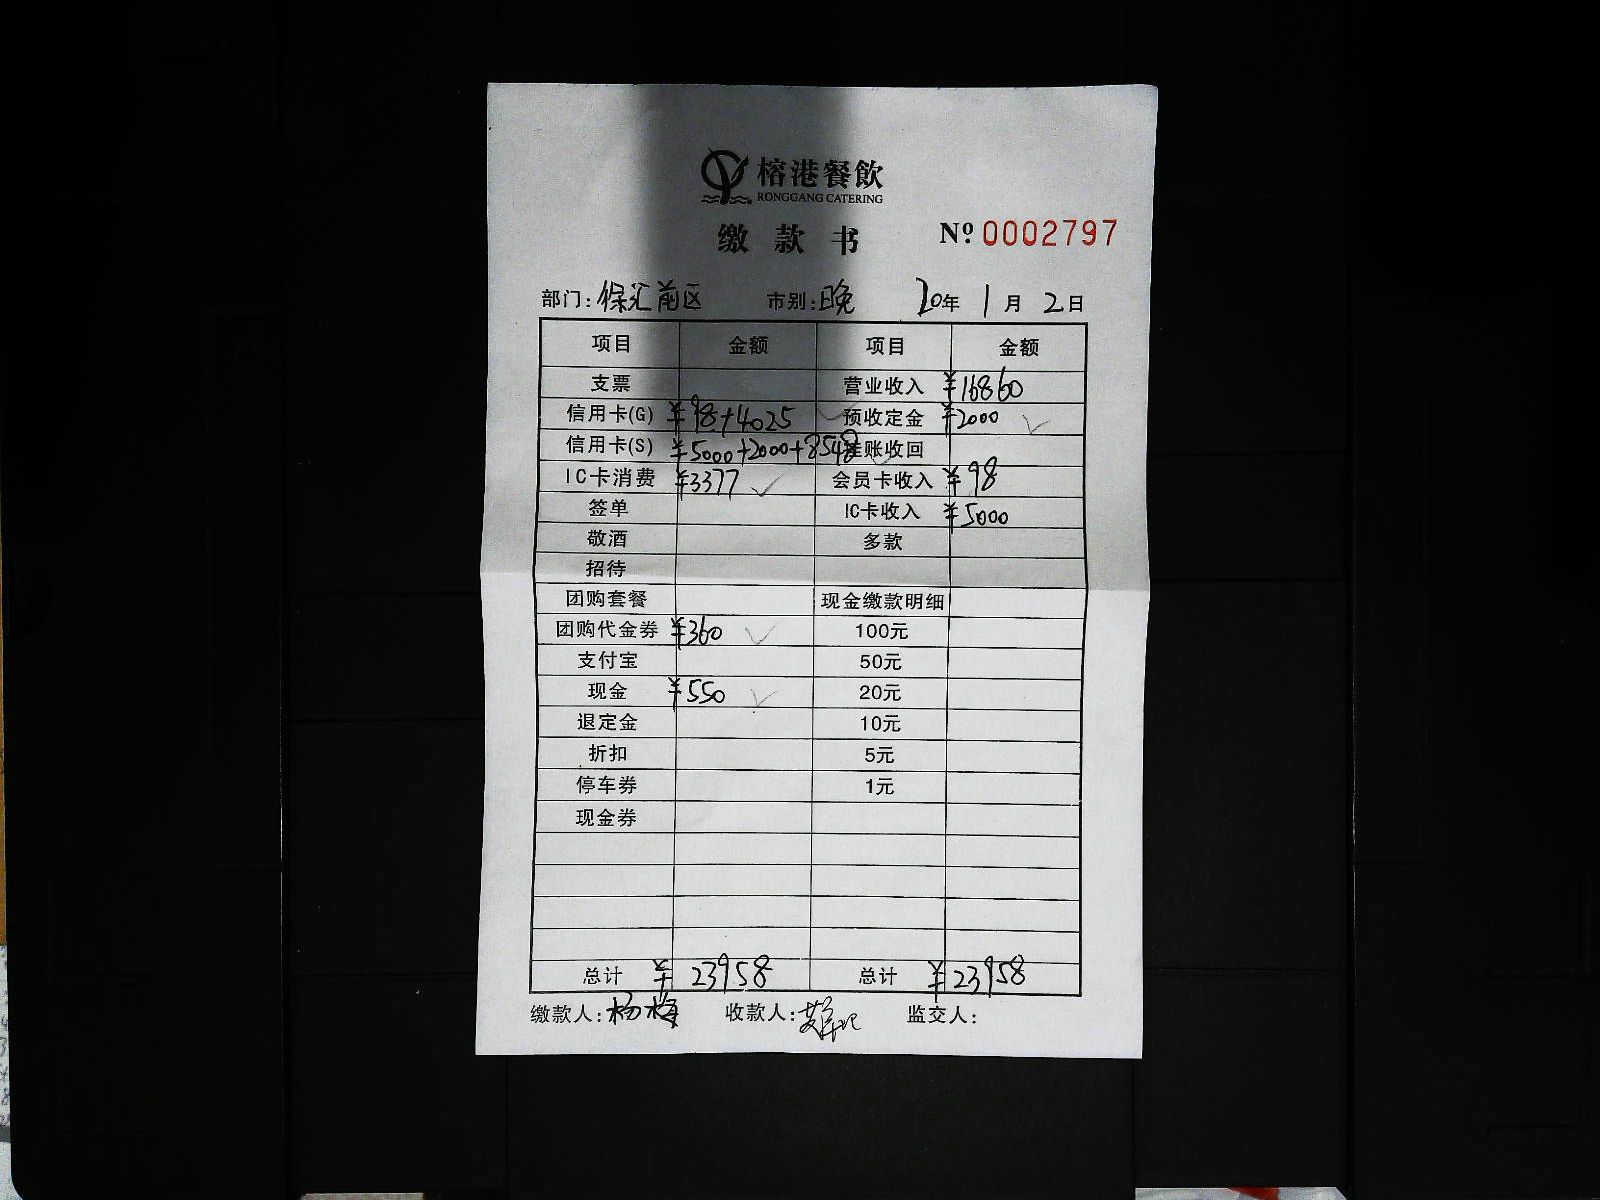 榕港餐飲
RONGGANG CATERING
缴款书 Nº 0002797
部门: 保汇前区 市别: 晚 20年 1月 2日
项目 金额 项目 金额
支票 营业收入 ¥16860
信用卡(G) ¥98+4025 预收定金 ¥2000
信用卡(S) ¥5000+2000+8548 挂账收回
IC卡消费 ¥3377 会员卡收入 ¥98
签单 IC卡收入 ¥5000
敬酒 多款
招待
团购套餐 现金缴款明细
团购代金券 ¥360 100元
支付宝 50元
现金 ¥550 20元
退定金 10元
折扣 5元
停车券 1元
现金券
总计 ¥23958 总计 ¥23958
缴款人: 杨梅 收款人: 监交人: